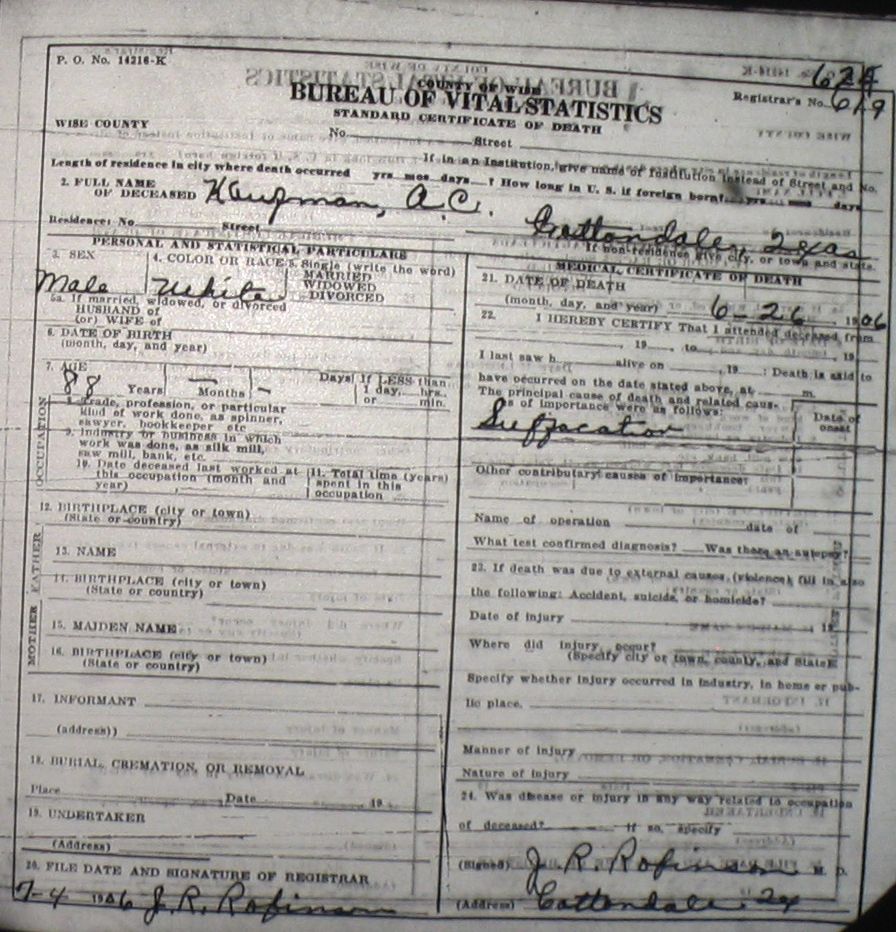 P. O. No. 14216-K
COUNTY OF WISE
BUREAU OF VITAL STATISTICS
STANDARD CERTIFICATE OF DEATH
624
Registrar's No. 619
WISE COUNTY
No. Street
If in an Institution, give name of Institution instead of Street and No.
Length of residence in city where death occurred yrs mos days ? How long in U. S. if foreign born? yrs mos days
2. FULL NAME OF DECEASED Kaufman, A.C.
Cottondale, Texas
Residence: No. Street
If non-residence give city, or town and state.
PERSONAL AND STATISTICAL PARTICULARS
3. SEX Male
4. COLOR OR RACE White
5. Single (write the word)
MARRIED
WIDOWED
DIVORCED
5a. If married, widowed, or divorced
HUSBAND of
(or) WIFE of
6. DATE OF BIRTH
(month, day, and year)
7. AGE
88 Years — Months - Days If LESS than
1 day, hrs.
or min.
OCCUPATION
8. Trade, profession, or particular
kind of work done, as spinner,
sawyer, bookkeeper etc
9. Industry or business in which
work was done, as silk mill,
saw mill, bank, etc.
10. Date deceased last worked at
this occupation (month and
year)
11. Total time (years)
spent in this
occupation
12. BIRTHPLACE (city or town)
(State or country)
FATHER
13. NAME
14. BIRTHPLACE (city or town)
(State or country)
MOTHER
15. MAIDEN NAME
16. BIRTHPLACE (city or town)
(State or country)
17. INFORMANT
(address))
18. BURIAL, CREMATION, OR REMOVAL
Place Date 19
19. UNDERTAKER
(Address)
20. FILE DATE AND SIGNATURE OF REGISTRAR
7-4 1906 J. R. Robinson
MEDICAL CERTIFICATE OF DEATH
21. DATE OF DEATH
(month, day, and year) 6-26 1906
22. I HEREBY CERTIFY That I attended deceased from
, 19 , to , 19
I last saw h alive on , 19 : Death is said to
have occurred on the date stated above, at m.
The principal cause of death and related caus-
es of importance were as follows:
Date of
onset
Suffocation
Other contributary causes of importance:
Name of operation date of
What test confirmed diagnosis? Was there an autopsy?
23. If death was due to external causes (violence) fill in also
the following: Accident, suicide, or homicide?
Date of injury 19
Where did injury occur?
(Specify city or town, county, and State)
Specify whether injury occurred in industry, in home or pub-
lic place.
Manner of injury
Nature of injury
24. Was disease or injury in any way related to occupation
of deceased? If so, specify
(Signed) J. R. Robinson M. D.
(Address) Cottondale, Tex